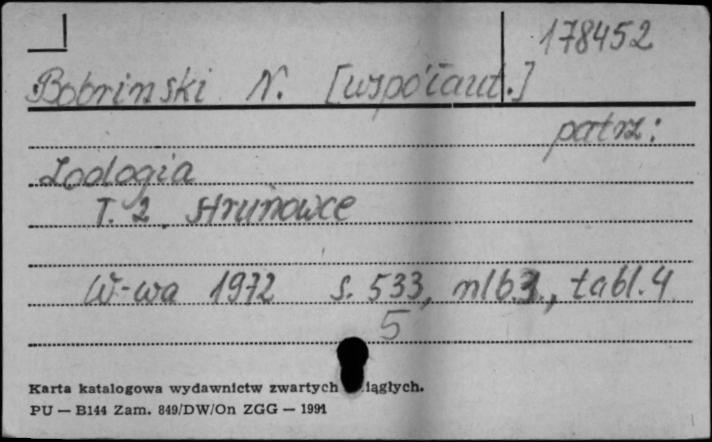 178452
Bobrinski N. [współaut.]
patrz:
Zoologia
T. 2 Strunowce
W-wa 1972 s. 533, nlb.1., tabl. 4
5
Karta katalogowa wydawnictw zwartych iągłych.
PU — B144 Zam. 849/DW/On ZGG — 1991